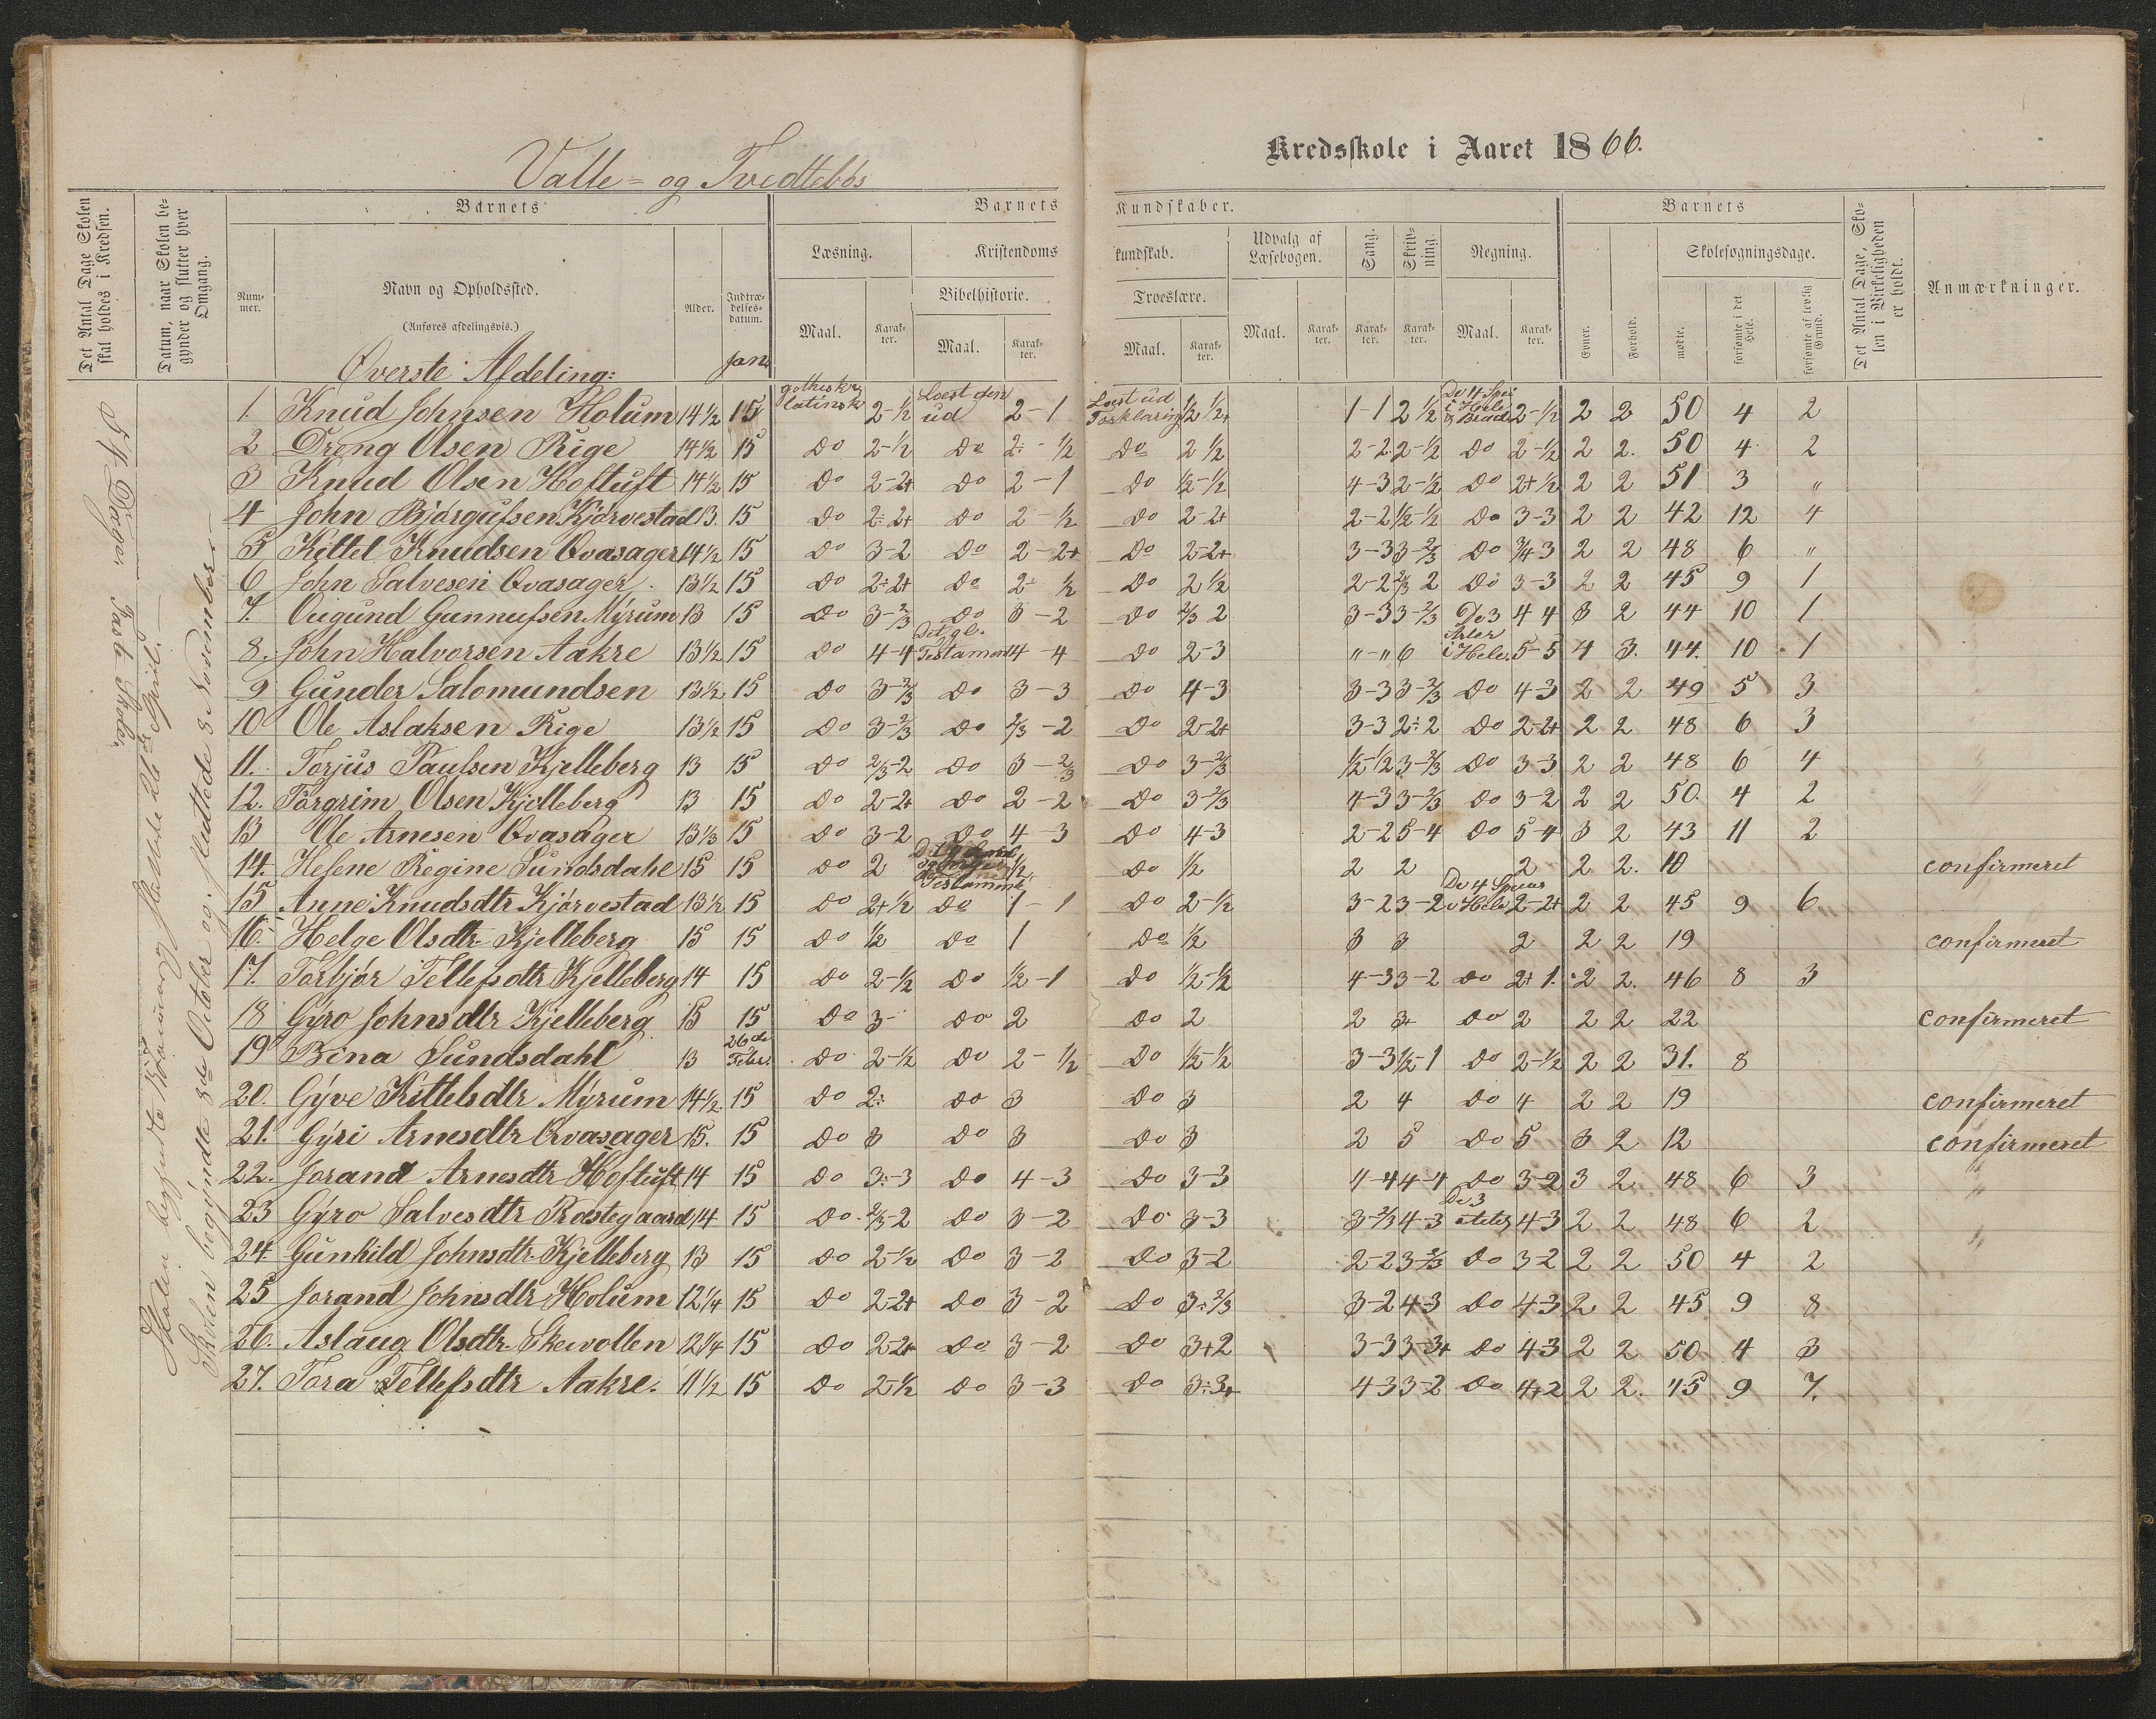 Valle- og Tvedtebøs
Kredsskole i Aaret 1866.
Det Antal Dage Skolen skal holdes i Kredsen.
Datum, naar Skolen begynder og slutter hver Omgang.
Barnets
Barnets
Kundskaber.
Barnets
Det Antal Dage, Skolen i Virkeligheden er holdt.
Anmærkninger.
Nummer.
Navn og Opholdssted.
(Anføres afdelingsvis.)
Alder.
Indtrædelsesdatum.
Læsning.
Kristendoms
kundskab.
Udvalg af Læsebogen.
Sang.
Skrivning.
Regning.
Skolesøgningsdage.
Bibelhistorie.
Troeslære.
Maal. Karakter. Maal. Karakter. Maal. Karakter. Maal. Karakter. Karakter. Karakter. Maal. Karakter. Evner. Forhold. mødte. forsømte i det Hele. forsømte af lovlig Grund.
Øverste Afdeling: Jan.
54 Dage. Fast Skole.
Skolen begyndte 15 Januar og sluttede 26de April.
Skolen begyndte 8de October og sluttede 8 November
1. Knud Johnsen Holum 14½ 15 gothisk og latinsk 2-½ Læst den ud 2-1 Læst ud Forklaring ½ ½+ 1-1 2 ½ De 4 Spec i Hele & Brøk 2-½ 2 2 50 4 2
2 Dreng Olsen Rige 14½ 15 Do 2-½ Do 2÷-½ Do 2 ½ 2-2 2-½ Do 2-½ 2 2. 50 4 2
3 Knud Olsen Hoftuft 14½ 15 Do 2-2+ Do 2-1 Do ½-½ 4-3 2-½ Do 2+½ 2 2 51 3 "
4 John Bjørgufsen Kjørvestad 13. 15 Do 2÷2+ Do 2-½ Do 2-2+ 2-2 ½-½ Do 3-3 2 2 42 12 4
5 Kittel Knudsen Qvasager 14½ 15 Do 3-2 Do 2-2+ Do 2-2+ 3-3 3-⅔ Do ¾ 3 2 2 48 6 "
6 John Salvesen Qvasager 13½ 15 Do 2÷2+ Do 2÷ ½ Do 2 ½ 2-2 ⅔ 2 Do 3-3 2 2 45 9 1
7. Ougund Gunnufsen Myrum 13 15 Do 3-⅔ Do 3-2 Do ⅔ 2 3-3 3-⅔ De 3 4 4 3 2 44 10 1
8. John Halvorsen Aakre 13½ 15 Do 4-4 Det gl. Testament 4-4 Do 2-3 "-" 6 Arter i Hele. 5-5 4 3. 44. 10 1
9 Gunder Salomundsen 13½ 15 Do 3-⅔ Do 3-3 Do 4-3 3-3 3-⅔ Do 4-3 2 2 49 5 3
10 Ole Aslaksen Rige 13½ 15 Do 3-⅔ Do ⅔-2 Do 2-2+ 3-3 2÷2 Do 2-2+ 2 2 48 6 3
11. Torjus Paulsen Kjelleberg 13 15 Do ⅔-2 Do 3-⅔ Do 3-⅔ ½-½ 3-⅔ Do 3-3 2 2 48 6 4
12. Torgrim Olsen Kjelleberg 13 15 Do 2-2+ Do 2-2 Do 3-⅔ 4-3 3-⅔ Do 3-2 2 2 50. 4 2
13 Ole Arnesen Qvasager 13⅓ 15 Do 3-2 Do 4-3 Do 4-3 2-2 5-4 Do 5-4 3 2 43 11 2
14. Helene Regine Sundsdahl 15 15 Do 2 Testament ½ Do ½ 2 2 2 2 2. 10 confirmeret
15 Anne Knudsdtr Kjørvestad 13½ 15 Do 2+½ Do 1-1 Do 2-½ 3-2 3-2 De 4 Species i Hele 2-2+ 2 2 45 9 6
16. Helge Olsdtr Kjelleberg 15 15 Do ½ Do 1 Do ½ 3 3 2 2 2 19 confirmeret
17. Torbjør Tellefsdtr Kjelleberg 14 15 Do 2-½ Do ½-1 Do ½-½ 4-3 3-2 Do 2+1. 2 2. 46 8 3
18 Gyro Johnsdtr Kjelleberg 15 15 Do 3- Do 2 Do 2 2 3+ Do 2 2 2 22 confirmeret
19 Bina Sundsdahl 13 26de Febr. Do 2-½ Do 2-½ Do ½-½ 3-3 ½-1 Do 2-½ 2 2 31. 8
20. Gyve Kittelsdtr Myrum 14½ 15 Do 2÷ Do 3 Do 3 2 4 Do 4 2 2 19 confirmeret
21. Gyri Arnesdtr Qvasager 15. 15 Do 3 Do 3 Do 3 2 5 Do 5 3 2 12 confirmeret
22. Jorand Arnesdtr Hoftuft 14 15 Do 3÷-3 Do 4-3 Do 3-3 4-4 4-4 Do 3-2 3 2 48 6 3
23 Gyro Salvesdtr Præstegaard 14 15 Do ⅔-2 Do 3-2 Do 3-3 3-⅔ 4-3 De 3 4-3 2 2 48 6 2
24 Gunhild Johnsdtr Kjelleberg 13 15 Do 2-½ Do 3-2 Do 3-2 2-2 3-⅔ Do 3-2 2 2 50 4 2
25 Jorand Johnsdtr Holum 12¼ 15 Do 2-2+ Do 3-2 Do 3÷⅔ 3-2 4-3 Do 4-3 2 2 45 9 8
26. Aslaug Olsdtr Skevollen 12¼ 15 Do 2-2+ Do 3-2 Do 3+2 3-3 3-3+ Do 4-3 2 2 50 4 3
27. Tora Tellefsdtr Aakre. 11½ 15 Do 2-½ Do 3-3 Do 3÷3+ 4-3 3-2 Do 4+2 2 2. 45 9 7.